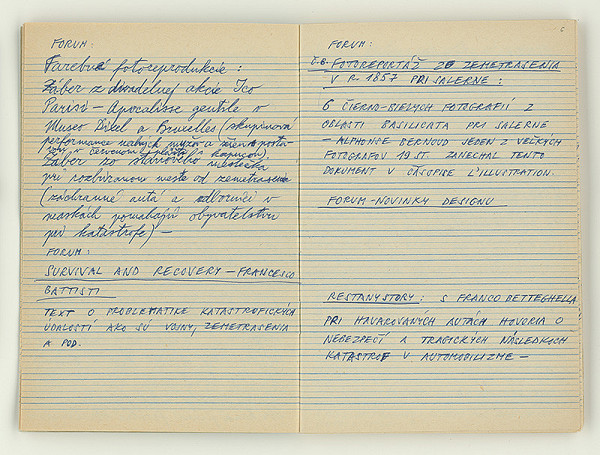 FORUM:
Farebné fotoreprodukcie:
Záber z divadelnej akcie Ico
Parisi – Apocalisse gentile v
Museo Ixel a Bruxelles (skupinová
performance nahých mužov a žien
v červenom kapucňou)
Záber zo
pri rozbúranom meste od zemetrasenia
(záchranné autá a odborníci v
maskách pomáhajú obyvateľstvu
pri katastrofe) –
FORUM:
SURVIVAL AND RECOVERY – FRANCESCO
BATTISTI
TEXT O PROBLEMATIKE KATASTROFICKÝCH
UDALOSTÍ AKO SÚ VOJNY, ZEMETRASENIA
A POD.
6
FORUM:
Č.B. FOTOREPORTÁŽ ZO ZEMETRASENIA
V R. 1857 PRI SALERNE:
6 ČIERNO-BIELYCH FOTOGRAFIÍ Z
OBLASTI BASILICATA PRI SALERNE
– ALPHONSE BERNOUD JEDEN Z VEĽKÝCH
FOTOGRAFOV 19 ST. ZANECHAL TENTO
DOKUMENT V ČASOPISE L'ILLUSTRATION.
FORUM – NOVINKY DESIGNU
RESTANYSTORY: S FRANCO BETTEGHELLA
PRI HAVAROVANÝCH AUTÁCH HOVORIA O
NEBEZPEČÍ A TRAGICKÝCH NÁSLEDKOCH
KATASTROF V AUTOMOBILIZME –